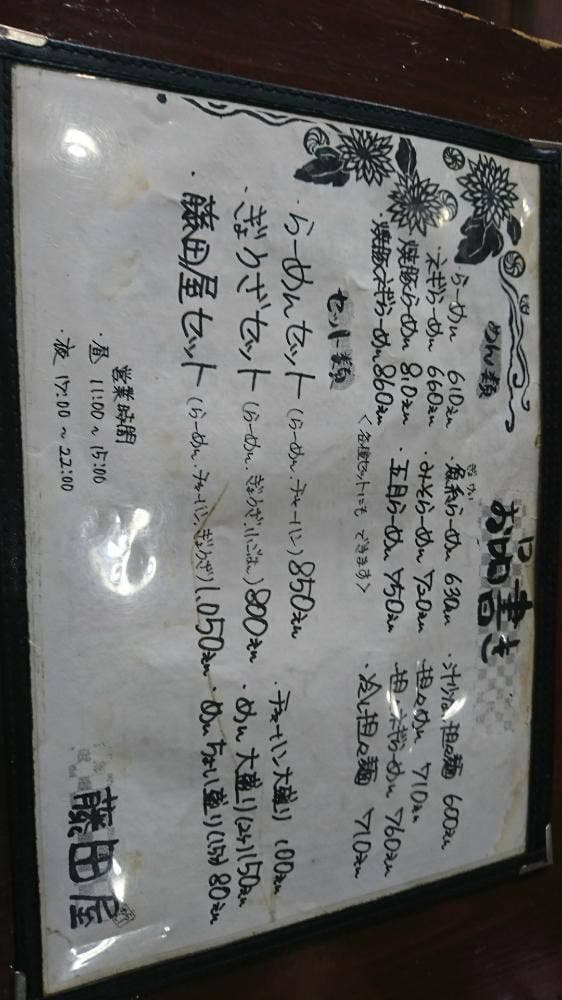 お品書き
めん類
・らーめん 610えん
・ネギらーめん 660えん
・焼豚らーめん 810えん
・焼豚ネギらーめん 860えん
・魚系らーめん 630えん
・みそらーめん 720えん
・五目らーめん 750えん
・汁なし担々麺 600えん
・担々めん 710えん
・担々ネギらーめん 760えん
・冷し担々麺 710えん
<各種セットにも できます>
セット類
・らーめんセット(らーめん、チャーハン)850えん
・ぎょうざセット(らーめん、ぎょうざ、小ごはん)800えん
・藤田屋セット(らーめん、チャーハン、ぎょうざ)1,050えん
・チャーハン大盛り 100えん
・めん大盛り(2玉)150えん
・めんちょい盛り(1.5)80えん
営業時間
・昼 11:00〜15:00
・夜 17:00〜22:00
藤田屋